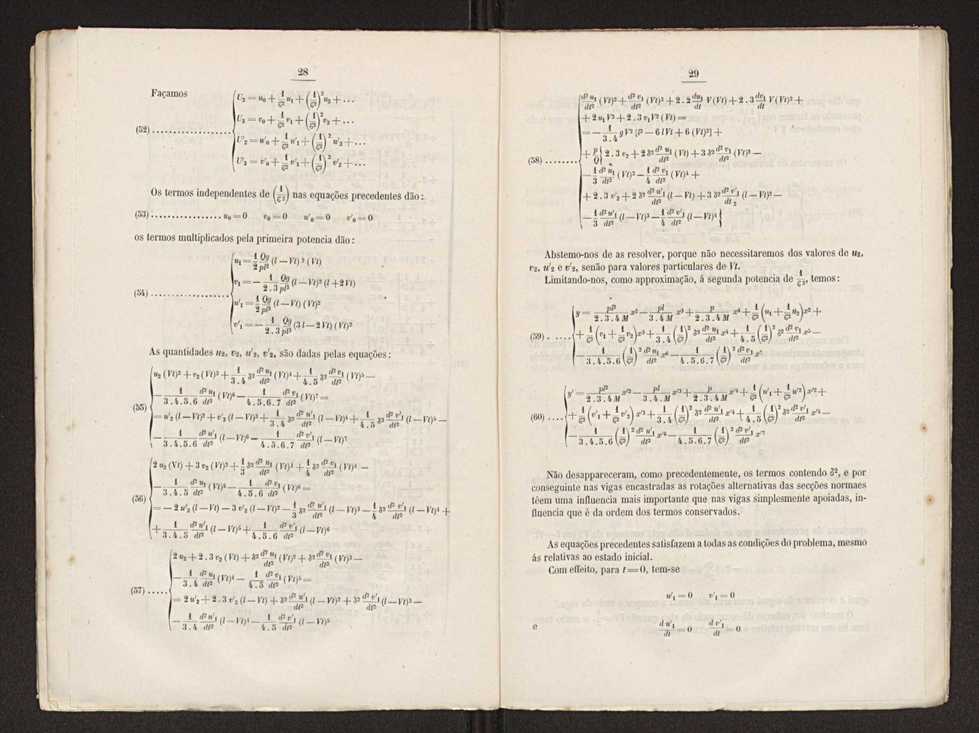 28
Façamos
U₂ = u₀ + 1/ς² u₁ + (1/ς²)² u₂ + ...
U₃ = v₀ + 1/ς² v₁ + (1/ς²)² v₂ + ...
(52)
U'₂ = u'₀ + 1/ς² u'₁ + (1/ς²)² u'₂ + ...
U'₃ = v'₀ + 1/ς² v'₁ + (1/ς²)² v'₂ + ...
Os termos independentes de (1/ς²) nas equações precedentes dão:
(53) ................ u₀ = 0 v₀ = 0 u'₀ = 0 v'₀ = 0
os termos multiplicados pela primeira potencia dão:
u₁ = 1/2 Qg/pl³ (l — Vt)² (Vt)
v₁ = — 1/2.3 Qg/pl³ (l — Vt)² (l + 2Vt)
(54)
u'₁ = 1/2 Qg/pl³ (l — Vt) (Vt)²
v'₁ = — 1/2.3 Qg/pl³ (3l — 2Vt) (Vt)²
As quantidades u₂, v₂, u'₂, v'₂, são dadas pelas equações:
u₂ (Vt)² + v₂ (Vt)³ + 1/3.4 δ² d²u₁/dt² (Vt)⁴ + 1/4.5 δ² d²v₁/dt² (Vt)⁵ —
— 1/3.4.5.6 d²u₁/dt² (Vt)⁶ — 1/4.5.6.7 d²v₁/dt² (Vt)⁷ =
(55)
= u'₂ (l — Vt)² + v'₂ (l — Vt)³ + 1/3.4 δ² d²u'₁/dt² (l — Vt)⁴ + 1/4.5 δ² d²v'₁/dt² (l — Vt)⁵ —
— 1/3.4.5.6 d²u'₁/dt² (l — Vt)⁶ — 1/4.5.6.7 d²v'₁/dt² (l — Vt)⁷
2 u₂ (Vt) + 3 v₂ (Vt)² + 1/3 δ² d²u₁/dt² (Vt)³ + 1/4 δ² d²v₁/dt² (Vt)⁴ —
— 1/3.4.5 d²u₁/dt² (Vt)⁵ — 1/4.5.6 d²v₁/dt² (Vt)⁶ =
(56)
= — 2 u'₂ (l — Vt) — 3 v'₂ (l — Vt)² — 1/3 δ² d²u'₁/dt² (l — Vt)³ — 1/4 δ² d²v'₁/dt² (l — Vt)⁴ +
+ 1/3.4.5 d²u'₁/dt² (l — Vt)⁵ + 1/4.5.6 d²v'₁/dt² (l — Vt)⁶
2 u₂ + 2.3 v₂ (Vt) + δ² d²u₁/dt² (Vt)² + δ² d²v₁/dt² (Vt)³ —
— 1/3.4 d²u₁/dt² (Vt)⁴ — 1/4.5 d²v₁/dt² (Vt)⁵ =
(57) .....
= 2 u'₂ + 2.3 v'₂ (l — Vt) + δ² d²u'₁/dt² (l — Vt)² + δ² d²v'₁/dt² (l — Vt)³ —
— 1/3.4 d²u'₁/dt² (l — Vt)⁴ — 1/4.5 d²v'₁/dt² (l — Vt)⁵
29
d²u₁/dt² (Vt)² + d²v₁/dt² (Vt)³ + 2.2 du₁/dt V (Vt) + 2.3 dv₁/dt V (Vt)² +
+ 2 u₁ V² + 2.3 v₁ V² (Vt) =
= — 1/3.4 g V² [l² — 6 l Vt + 6 (Vt)²] +
(58) ........
+ p/Q { 2.3 v₂ + 2 δ² d²u₁/dt² (Vt) + 3 δ² d²v₁/dt² (Vt)² —
— 1/3 d²u₁/dt² (Vt)³ — 1/4 d²v₁/dt² (Vt)⁴ +
+ 2.3 v'₂ + 2 δ² d²u'₁/dt² (l — Vt) + 3 δ² d²v'₁/dt² (l — Vt)² —
— 1/3 d²u'₁/dt² (l — Vt)³ — 1/4 d²v'₁/dt² (l — Vt)⁴ }
Abstemo-nos de as resolver, porque não necessitaremos dos valores de u₂,
v₂, u'₂ e v'₂, senão para valores particulares de Vt.
Limitando-nos, como approximação, á segunda potencia de 1/ς², temos:
y = pl²/2.3.4 M x² — pl/3.4 M x³ + p/2.3.4 M x⁴ + 1/ς² (u₁ + 1/ς² u₂) x² +
(59) . ....
+ 1/ς² (v₁ + 1/ς² v₂) x³ + 1/3.4 (1/ς²)² δ² d²u₁/dt² x⁴ + 1/4.5 (1/ς²)² δ² d²v₁/dt² x⁵ —
— 1/3.4.5.6 (1/ς²)² d²u₁/dt² x⁶ — 1/4.5.6.7 (1/ς²)² d²v₁/dt² x⁷
y' = pl²/2.3.4 M x'² — pl/3.4 M x'³ + p/2.3.4 M x'⁴ + 1/ς² (u'₁ + 1/ς² u'²) x'² +
(60) ....
+ 1/ς² (v'₁ + 1/ς² v'₂) x'³ + 1/3.4 (1/ς²)² δ² d²u'₁/dt² x'⁴ + 1/4.5 (1/ς²)² δ² d²v'₁/dt² x'⁵ —
— 1/3.4.5.6 (1/ς²)² d²u'₁/dt² x'⁶ — 1/4.5.6.7 (1/ς²)² d²v'₁/dt² x'⁷
Não desappareceram, como precedentemente, os termos contendo δ², e por
conseguinte nas vigas encastradas as rotações alternativas das secções normaes
têem uma influencia mais importante que nas vigas simplesmente apoiadas, in-
fluencia que é da ordem dos termos conservados.
As equações precedentes satisfazem a todas as condições do problema, mesmo
ás relativas ao estado inicial.
Com effeito, para t = 0, tem-se
u'₁ = 0 v'₁ = 0
e du'₁/dt = 0 dv'₁/dt = 0